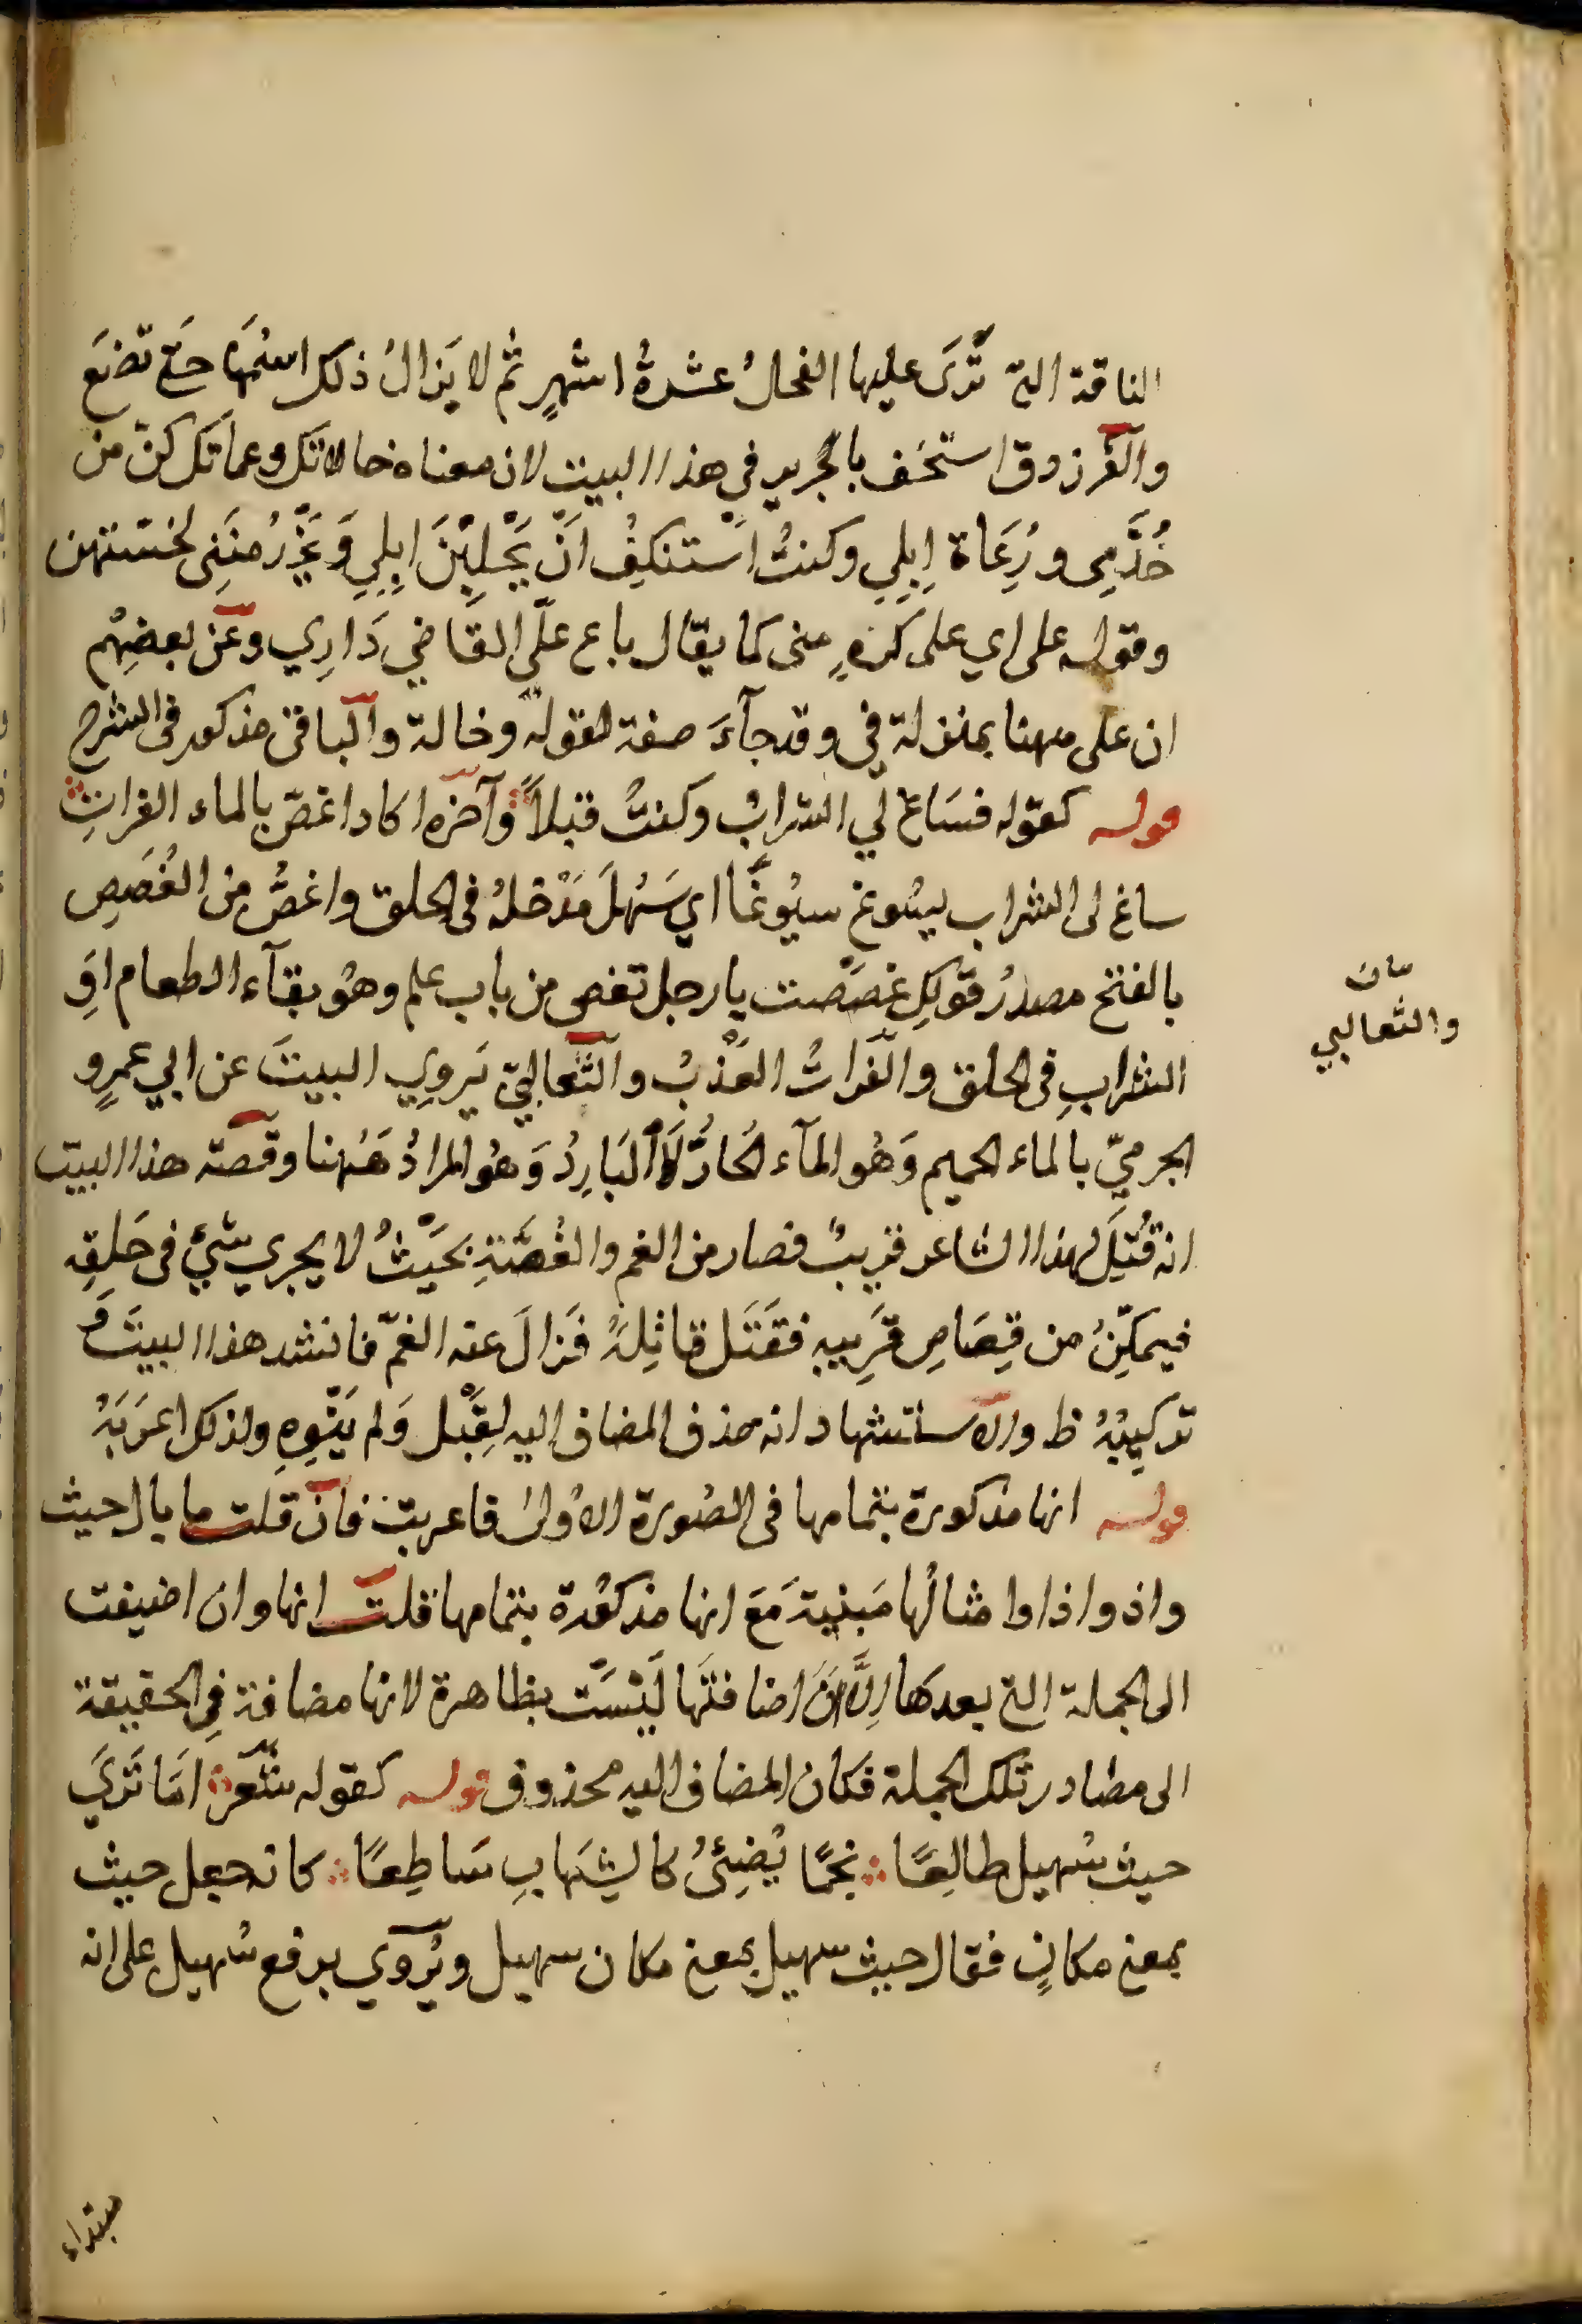 الناقة التي تَرَى عليها الفحلُ عشرةُ اشهرٍ ثم لا يَزالُ ذلك اسمَها حتى تضَعَ
والفرزدق استخف بالجرير في هذا البيت لان معناه خالاتك وعماتك كنّ من
خُدَّمِي ورُعَاة اِبِلِي وكنتُ استنكِفُ اَنْ يَحْلِبْنَ اِبِلِي وَيَخْدُمْنَنِى لخستهن
وقوله على اي على كُرهٍ منى كما يقال باع علَى القَاضِي دَارِي وعَن بعضِهُم
ان على ههنا بمنزلة في وقد جآءَ صفة لقوله وخالة والباقى مذكور فى الشرح
قوله كقوله فسَاغ لي الشرابُ وكنتُ قبلاً وآخره اكاد اغصّ بالماء الفراتِ
ساغ لى الشراب يسُوغ سيُوغًا اي سَهُلَ مَدْخلهُ فى الحلق واغصُّ من الغُصَصِ
بالفتح مصدرُ قولكِ غصَصْت يا رجل تغص من باب علم وهُو بقآء الطعام اوِ
الشرابِ فى الحلق والفُراتُ العَذْبُ والثعالبيّ يَروِي البيتَ عن ابي عمرٍو
الجرميّ بالماء الحميم وَهُو المآء الحُارُّ لَا البَارِدُ وَهُو المرادُ هَهُنا وقصّته هذا البيت
انه قُتِلَ لهذا الشاعر قريبٌ فصار من الغم والغُصَّةِ بحَيْثُ لا يجري شيْئ فى حَلقِه
فيمكّنُ من قِصَاصِ قرِيبِهِ فقَتَل قاتِلهُ فَزالَ عنه الغمّ فانشد هذا البيتَ وَ
تركيبُهُ ظ والاستشهاد انه حذف المضاف اليه لِقَبْل وَلم يَنْوِهِ ولذلك اعرَبَهُ
قوله انها مذكورة بتمامها فى الصُورة الاُولىٰ فاعربت فان قلت ما بال حيث
واذ واذا وامثالُها مَبنيةً مَعَ انها مذكورة بتمامها قلت انها وان اضيفت
الى الجملة التي بعدها اِلَّا اَنَّ اضافتَها لَيْسَتْ بظاهرة لانها مضافة فِي الحقيقة
الى مصادر تلك الجملة فكان المضاف اليه محذوف قوله كقوله شعر امَا تَرَي
حيث سُهيل طالِعًا نجمًا يُضِئُ كالشِهابِ سَاطِعًا كانه جعل حيث
بمعنى مكانٍ فقال حيث سهيل بمعنى مكان سهيل ويُروي برفع سُهيل على انه
والثعالبي
مبتداء